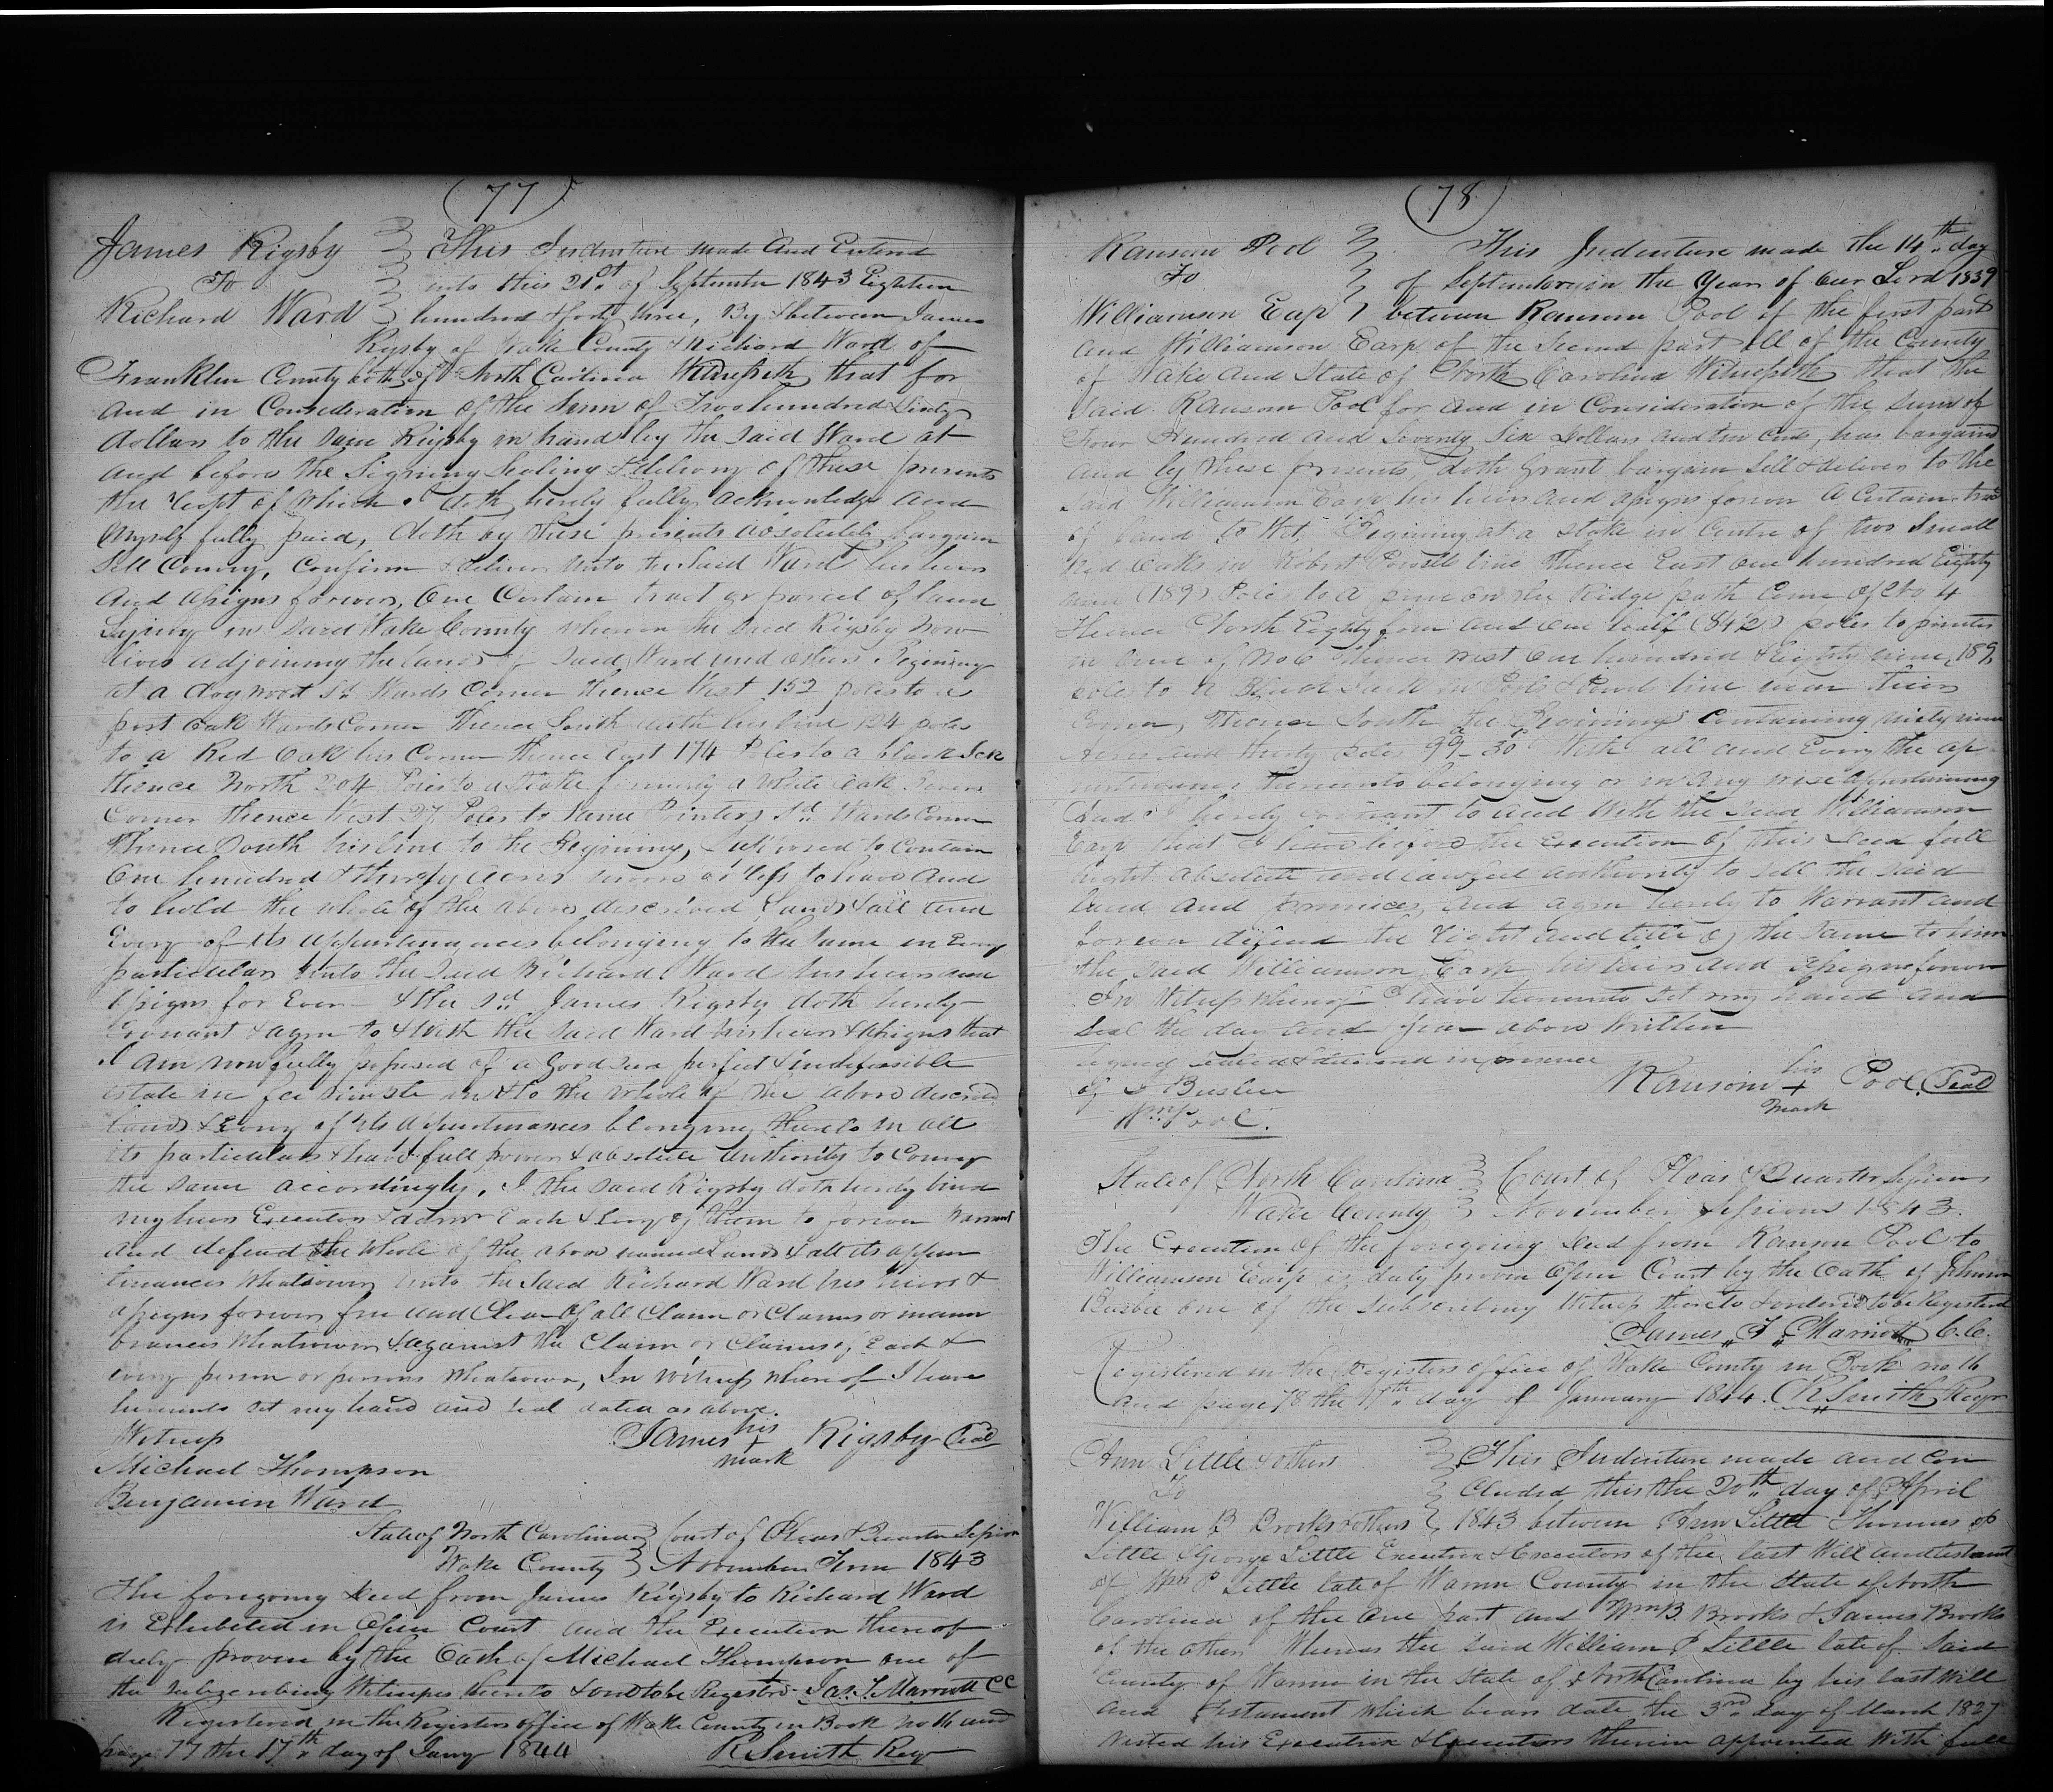 (77)
James Rigsby This Indenture made and Entered
To into this 21st of September 1843 Eighteen
Richard Ward hundred & forty three, By & between James
Rigsby of Wake County & Richard Ward of
Franklin County both of North Carolina Witnesseth that for
and in Consideration of the Sum of Two hundred & Sixty
dollars to the Said Rigsby in hand by the said Ward at
and before the Signing Sealing & delivery of these presents
the Receipt of which I doth hereby fully acknowledge and
myself fully paid, doth by these presents absolutely bargain
Sell Convey, Confirm & deliver unto the Said Ward his heirs
and assigns forever, One Certain tract or parcel of land
Lying in said Wake County whereon the said Rigsby now
lives adjoining the lands of said Ward and others Begining
at a dogwood Sd Wards Corner thence West 152 poles to a
post oak Wards Corner Thence South with his line 124 poles
to a Red Oak his Corner thence East 174 Poles to a black Jack
thence North 204 Poles to a Stake formerly a White Oak
Corner thence West 27 Poles to Some Pointers Sd Wards Corner
Thence South his line to the Begining, Supposed to Contain
One hundred & thirty acres more or less to have and
to hold the whole of the above described Land & all and
Every of its appurtenances belonging to the Same in Every
particular unto the Said Richard Ward his heirs and
assigns for Ever & the sd James Rigsby doth hereby
Covenant & agree to & with the said Ward his heirs & assigns that
I am now fully possessed of a Good Sure perfect & indefeasible
estate in fee Simple in & to the whole of the above described
land & Every of its appurtenances belonging thereto in all
its particulars & have full power & absolute authority to Convey
the same accordingly, I the said Rigsby doth hereby bind
my heirs Executors & admr Each & Every of them to forever Warrant
and defend the whole of the above named Land & all its appur
tenances whatsoever unto the said Richard Ward his heirs &
assigns forever free and Clear of all Claim or Claims or incum
brances whatsoever & against the Claim or Claims of Each &
every person or persons whatsoever, In witness whereof I have
hereunto set my hand and seal dated as above.
Witness James his + mark Rigsby Seal
Michael Thompson
Benjamin Ward
State of North Carolina Court of Pleas & Quarter Session
Wake County November Term 1843
The foregoing deed from James Rigsby to Richard Ward
is Exhibited in Open Court and the Execution thereof
duly proven by the Oath of Michael Thompson one of
the subscribing Witnesses thereto & ord to be Registrd Jas. T. Marriott CC
Registered in the Registers office of Wake County in Book no 16 and
page 77 the 17th day of Jany 1844 R Smith Regr
(78)
Ransom Pool This Indenture made the 14th day
To of September in the Year of our Lord 1839
Williamson Earp between Ransom Pool of the first part
and Williamson Earp of the Second part all of the County
of Wake and State of North Carolina Witnesseth that the
said Ransom Pool for and in Consideration of the sum of
Four Hundred and Seventy Six Dollars and ten cents, has bargained
and by these presents, doth grant bargain Sell & deliver to the
said Williamson Earp his heirs and assigns forever a Certain tract
of land to Wit, Begining at a stake in Centre of two Small
Red Oaks in Robert Powells line Thence East one hundred Eighty
nine (189) Poles to a pine on the Ridge path Corner of No 4
Thence North Eighty four and one half (84½) poles to pointers
in line of No 6 Thence West One hundred & Eighty nine, 189,
poles to a Black Jack in Pools & Powels line near their
Corner, Thence South the Begining Containing ninty nine
Acres and thirty poles 99a 30p With all and Every the ap
purtenances tenements belonging or in any wise appertaining
and I hereby covenant to and With the said Williamson
Earp that I have before the Execution of this deed full
right absolute and lawful authority to Sell the said
land and premises, and agree hereby to Warrant and
forever defend the right and title of the Same to him
the said Williamson Earp his heirs and assigns forever
In Witness whereof I have hereunto set my hand and
Seal the day and year above written
signed sealed & delivered in presence
of J Busbee Ransom his + mark Pool Seal
Wm Pool.
State of North Carolina Court of Pleas & Quarter Sessions
Wake County November Sessions 1843.
The Execution of the foregoing deed from Ransom Pool to
Williamson Earp is duly proven Open Court by the Oath of Johnson
Busbee one of the subscribing Witness thereto & ordered to be Registered
James T Marriott C.C.
Registered in the Registers office of Wake County in Book no 16
and page 78 the 17th day of January 1844. R Smith Regr
Ann Little & others This Indenture made and Con
To cluded this the 20th day of April
William B Brooks & others 1843 between Ann Little Thomas P
Little George Little Executrix & Executors of the last Will and testament
of Wm P Little late of Warren County in the State of North
Carolina of the one part and Wm B. Brooks & James Brooks
of the other Whereas the said William P Little late of said
County of Warren in the State of North Carolina by his last Will
and Testament which bears date the 3rd day of March 1827
vested his Executrix & Executors therein appointed With full